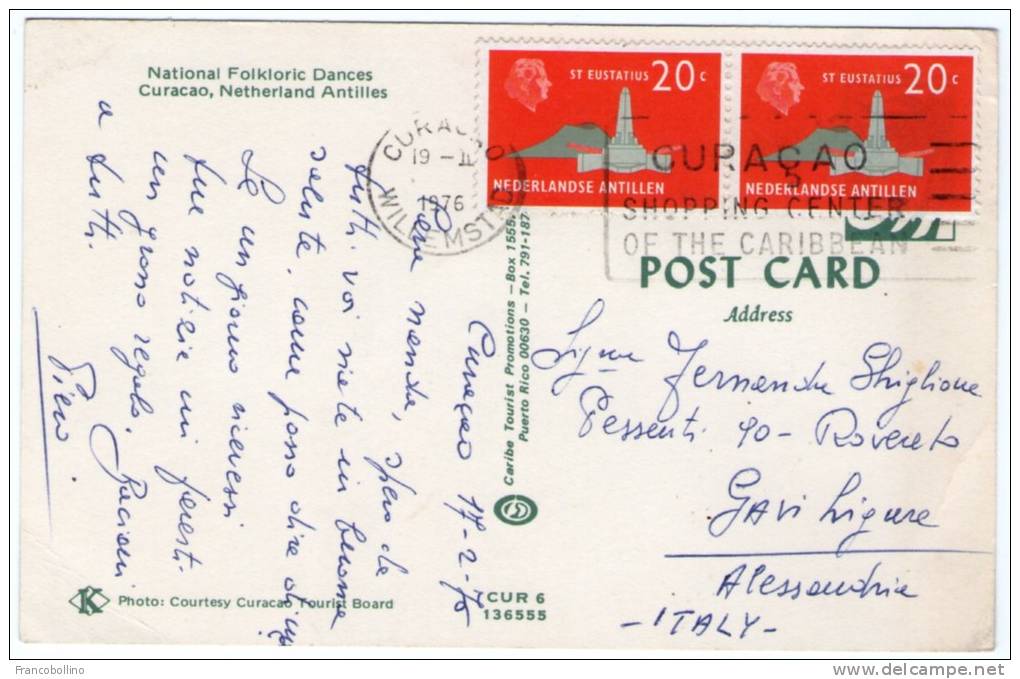 National Folkloric Dances
Curacao, Netherland Antilles
Curacao 17-2-76
Cara nanda, spero che
tutti voi siete in buona
salute, come posso dire
Se un giorno ricevessi
tue notizie mi faresti
un grosso regalo. Bacioni
a tutti.
Piero.
K
Photo: Courtesy Curacao Tourist Board
CUR 6
136555
Caribe Tourist Promotions – Box 1555,
Puerto Rico 00630 – Tel. 791-187
ST EUSTATIUS 20 c
NEDERLANDSE ANTILLEN
ST EUSTATIUS 20 c
NEDERLANDSE ANTILLEN
CURAÇAO
19 - II
1976
WILLEMSTAD
CURAÇAO
SHOPPING CENTER
OF THE CARIBBEAN
POST CARD
Address
Fernanda Ghiglione
Pessenti 90 - Rovereto
Gavi Ligure
Alessandria
- ITALY -
Francobollino
delcampe.net